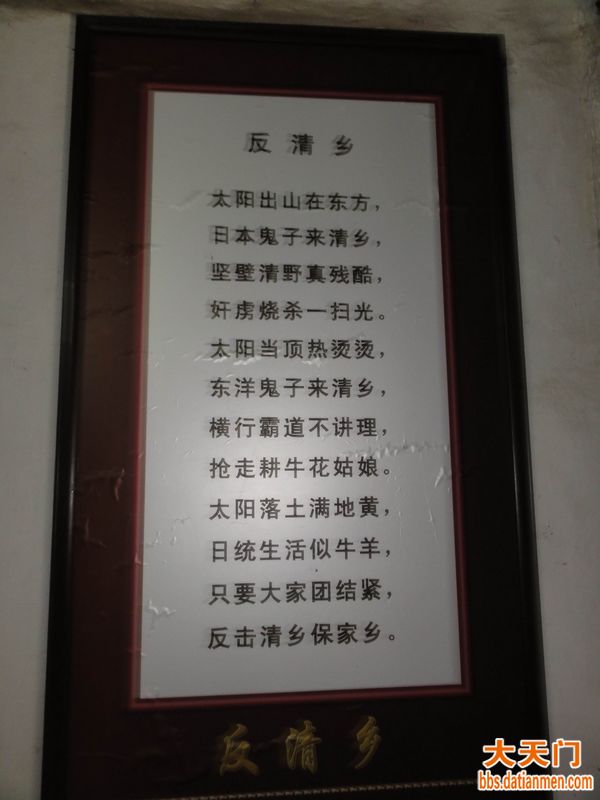 反清乡
太阳出山在东方，
日本鬼子来清乡，
坚壁清野真残酷，
奸虏烧杀一扫光。
太阳当顶热烫烫，
东洋鬼子来清乡，
横行霸道不讲理，
抢走耕牛花姑娘。
太阳落土满地黄，
日统生活似牛羊，
只要大家团结紧，
反击清乡保家乡。
反清乡
大天门
bbs.datianmen.com